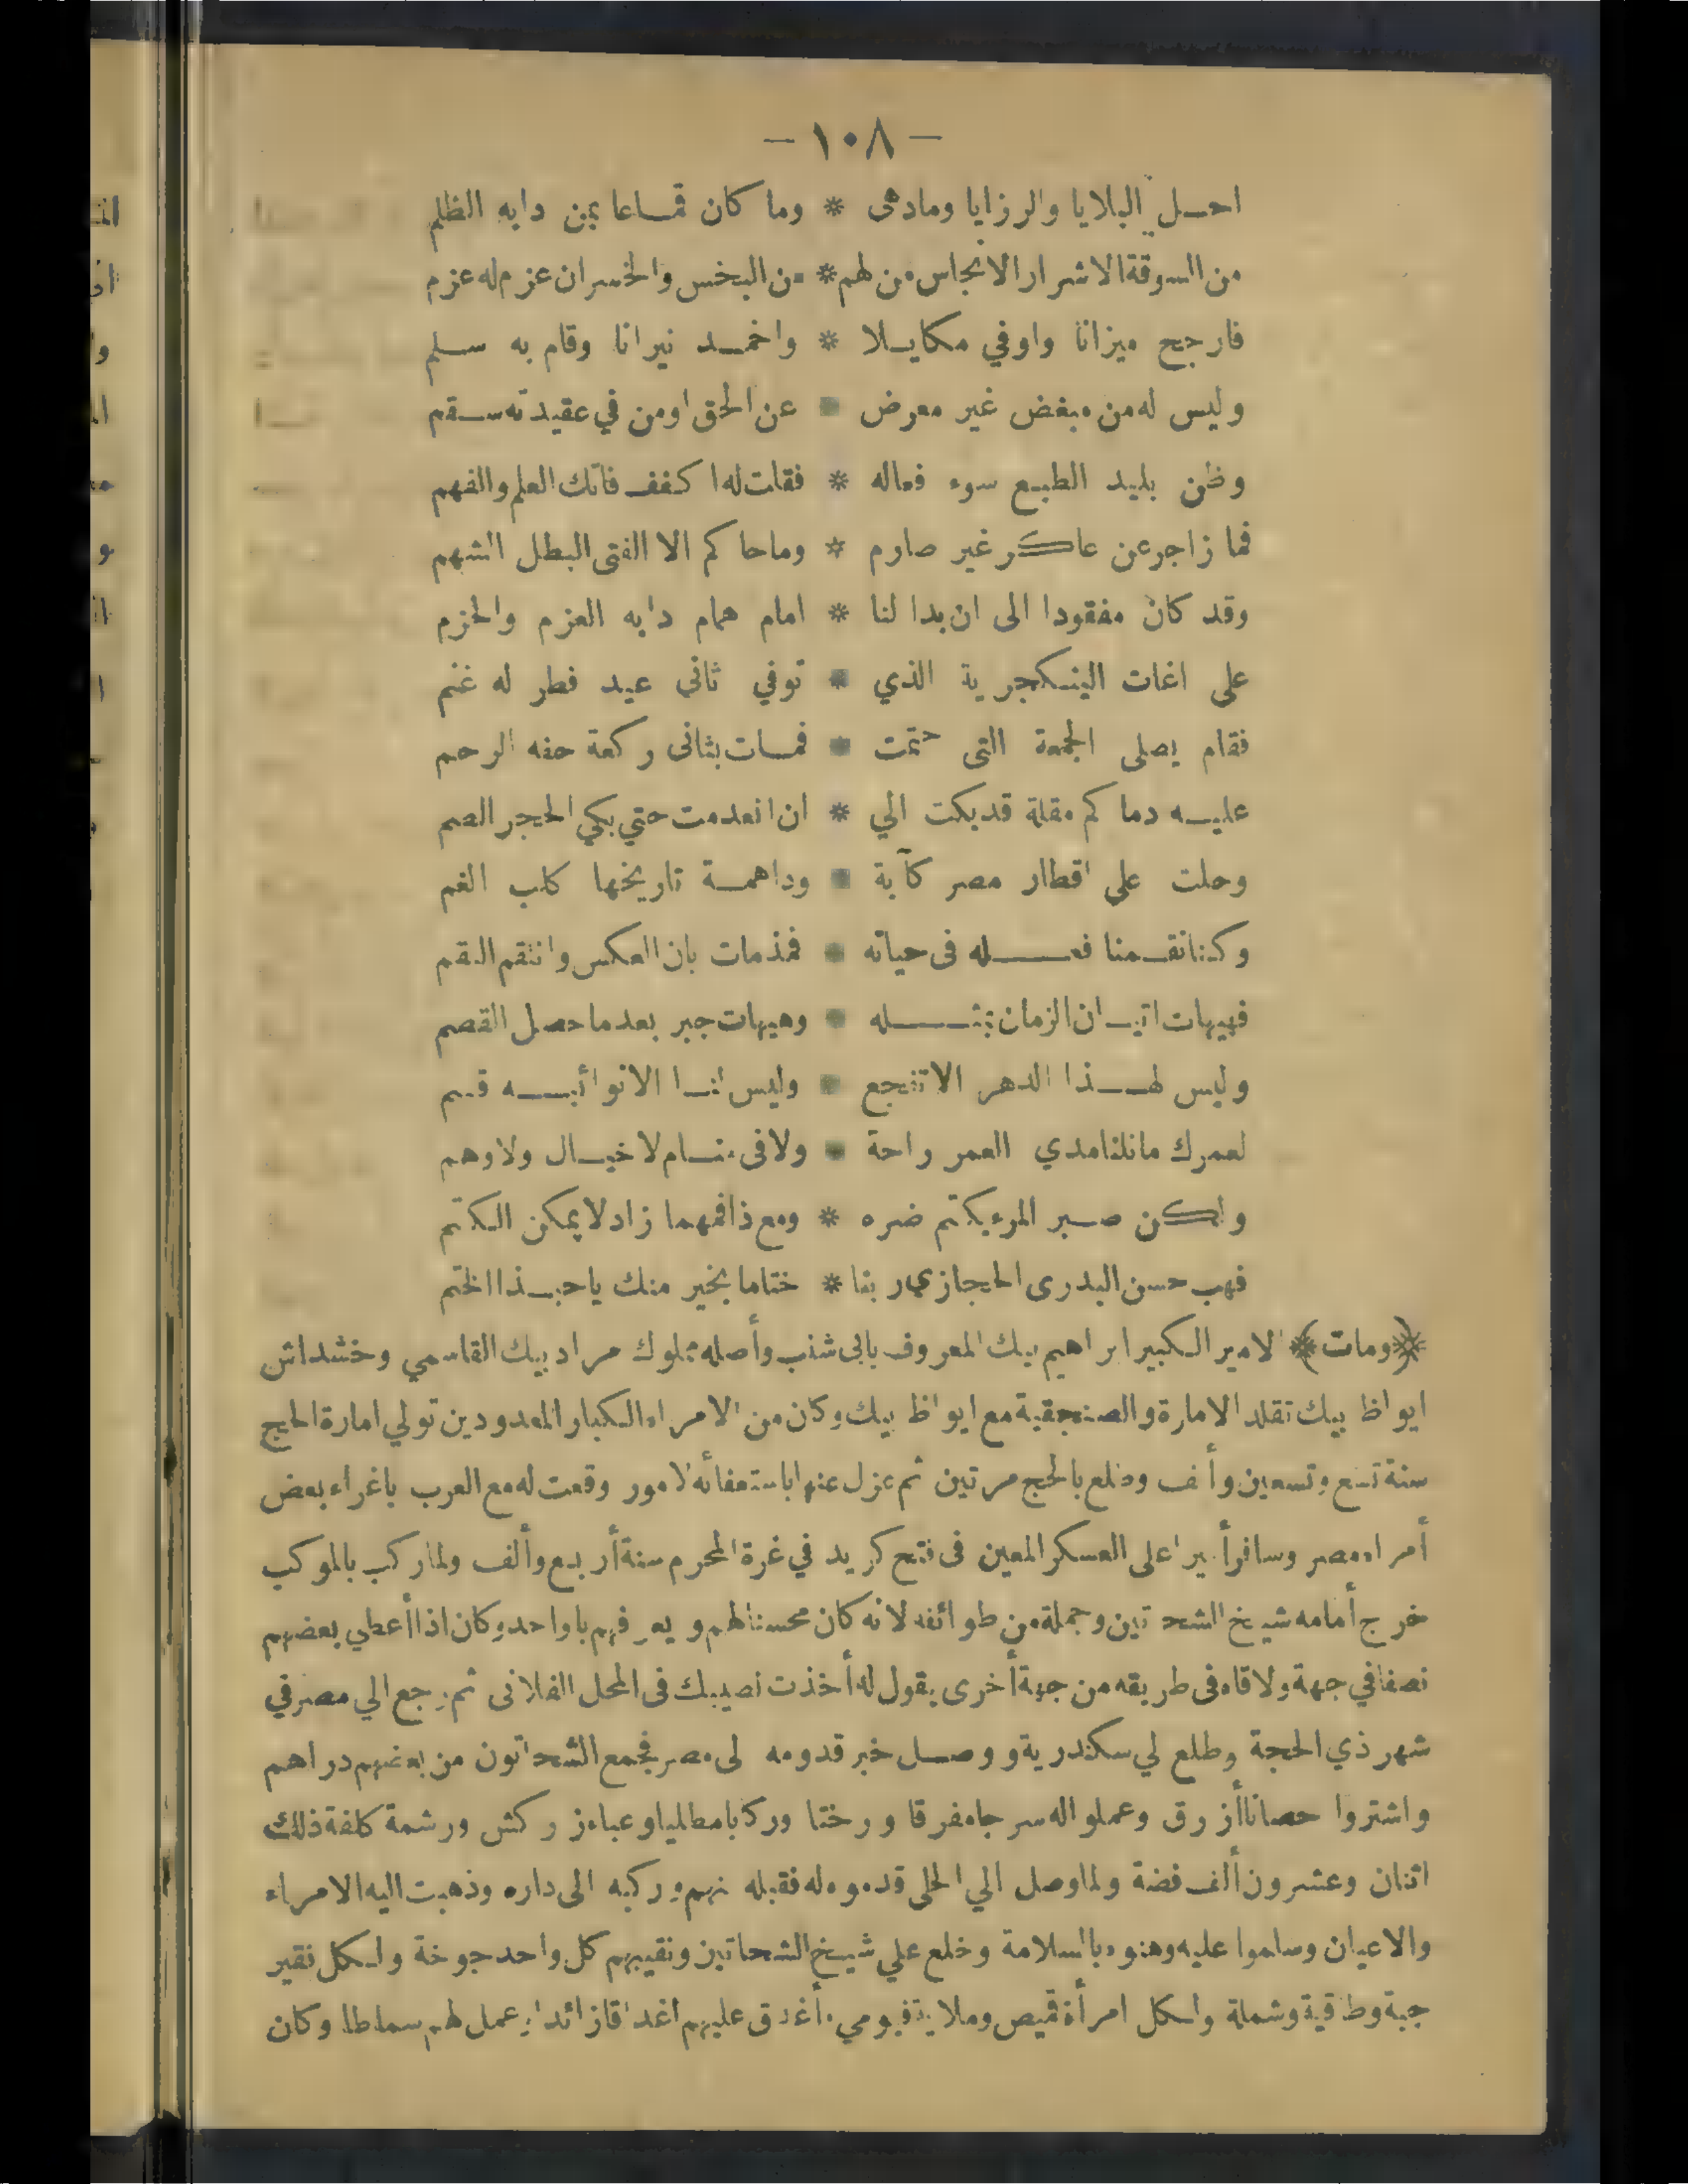 — ١٠٨ —
احل البلايا والرزايا ومادهى * وما كان قماعا بمن دابه الظلم
من السوقة الاشرار الانجاس من لهم * من البخس والخسران عزم له عزم
فارجح ميزانا واوفي مكايلا * واخمد نيرانا وقام به سلم
وليس له من مبغض غير معرض * عن الحق اومن في عقيدته سقم
وظن بليد الطبع سوء فعاله * فقلت له اكفف فاتك العلم والفهم
فما زاجر عن عاكر غير صارم * وما حاكم الا الفتى البطل الشهم
وقد كان مفقودا الى ان بدا لنا * امام همام دابه العزم والحزم
على اغات الينكجرية الذي * توفي ثاني عيد فطر له غنم
فقام يصلى الجمعة التى حتمت * فمات بثانى ركعة حفه الرحم
عليه دما كم مقلة قد بكت الي * ان انعدمت حتي بكي الحجر الصم
وحلت على اقطار مصر كآبة * وداهمة تاريخها كلب الغم
وكنا نقمنا فعله فى حياته * فمذ مات بان العكس وانتقم النقم
فهيهات اتيان الزمان بمثله * وهيهات جبر بعد ما حصل القصم
وليس لهذا الدهر الا تفجع * وليس لنا الا نوائبه قسم
لعمرك ما نلنا مدي العمر راحة * ولا فى منام لا خيال ولا وهم
ولكن صبر المرء يكتم ضره * ومع ذا فمهما زاد لا يمكن الكتم
فهب حسن البدرى الحجازي ربنا * ختاما بخير منك يا حبذا الختم
﴿ ومات ﴾ الامير الكبير ابراهيم بيك المعروف بابى شنب وأصله مملوك مراد بيك القاسمي وخشداش
ايواظ بيك تقلد الامارة والصنجقية مع ايواظ بيك وكان من الامراء الكبار المعدودين تولي امارة الحج
سنة تسع وتسعين وألف وطلع بالحج مرتين ثم عزل عنها باستعفائه لامور وقعت له مع العرب باغراء بعض
أمراء مصر وسافر أميرا على العسكر المعين فى فتح كريد في غرة المحرم سنة أربع وألف ولما ركب بالموكب
خرج أمامه شيخ الشحاتين وجملة من طوائفه لانه كان محسنا لهم ويعرفهم باواحد وكان اذا أعطي بعضهم
نصفا في جهة ولاقاه فى طريقه من جهة أخرى يقول له أخذت نصيبك فى المحل الفلانى ثم رجع الي مصر في
شهر ذي الحجة وطلع لي سكندرية ووصل خبر قدومه لى مصر فجمع الشحاتون من بعضهم دراهم
واشتروا حصانا أزرق وعملوا له سرجا مفرقا ورختا وركابا مطليا وعباء زركش ورشمة كلفة ذلك
اثنان وعشرون ألف فضة ولما وصل الي الحلى قدموه له فقبله منهم وركبه الى داره وذهبت اليه الامراء
والاعيان وسلموا عليه وهنوه بالسلامة وخلع علي شيخ الشحاتين ونقيبهم كل واحد جوخة ولكل فقير
جبة وطاقية وشملة ولكل امرأة قميص وملاية فيومي وأغدق عليهم اغداقا زائدا وعمل لهم سماطا وكان